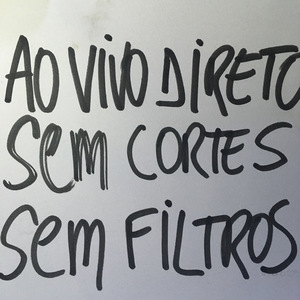 AO VIVO DIRETO
SEM CORTES
SEM FILTROS